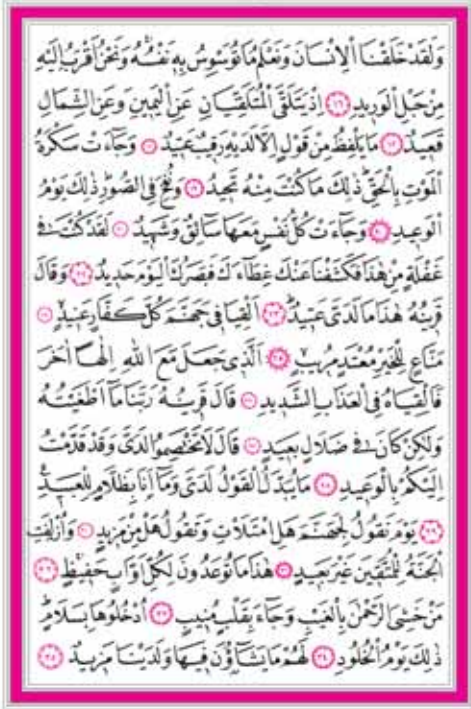 وَلَقَدْ خَلَقْنَا الْاِنْسَانَ وَنَعْلَمُ مَا تُوَسْوِسُ بِهٖ نَفْسُهُ وَنَحْنُ اَقْرَبُ اِلَيْهِ
مِنْ حَبْلِ الْوَرٖيدِ ١٦ اِذْ يَتَلَقَّى الْمُتَلَقِّيَانِ عَنِ الْيَمٖينِ وَعَنِ الشِّمَالِ
قَعٖيدٌ ١٧ مَا يَلْفِظُ مِنْ قَوْلٍ اِلَّا لَدَيْهِ رَقٖيبٌ عَتٖيدٌ ١٨ وَجَٓاءَتْ سَكْرَةُ
الْمَوْتِ بِالْحَقِّ ذٰلِكَ مَا كُنْتَ مِنْهُ تَحٖيدُ ١٩ وَنُفِخَ فِي الصُّورِ ذٰلِكَ يَوْمُ
الْوَعٖيدِ ٢٠ وَجَٓاءَتْ كُلُّ نَفْسٍ مَعَهَا سَٓائِقٌ وَشَهٖيدٌ ٢١ لَقَدْ كُنْتَ فٖي
غَفْلَةٍ مِنْ هٰذَا فَكَشَفْنَا عَنْكَ غِطَٓاءَكَ فَبَصَرُكَ الْيَوْمَ حَدٖيدٌ ٢٢ وَقَالَ
قَرٖينُهُ هٰذَا مَا لَدَيَّ عَتٖيدٌ ٢٣ اَلْقِيَا فٖي جَهَنَّمَ كُلَّ كَفَّارٍ عَنٖيدٍ ٢٤
مَنَّاعٍ لِلْخَيْرِ مُعْتَدٍ مُرٖيبٍ ٢٥ اَلَّذٖي جَعَلَ مَعَ اللّٰهِ اِلٰهًا اٰخَرَ
فَاَلْقِيَاهُ فِي الْعَذَابِ الشَّدٖيدِ ٢٦ قَالَ قَرٖينُهُ رَبَّنَا مَٓا اَطْغَيْتُهُ
وَلٰكِنْ كَانَ فٖي ضَلَالٍ بَعٖيدٍ ٢٧ قَالَ لَا تَخْتَصِمُوا لَدَيَّ وَقَدْ قَدَّمْتُ
اِلَيْكُمْ بِالْوَعٖيدِ ٢٨ مَا يُبَدَّلُ الْقَوْلُ لَدَيَّ وَمَٓا اَنَا بِظَلَّامٍ لِلْعَبٖيدِ
٢٩ يَوْمَ نَقُولُ لِجَهَنَّمَ هَلِ امْتَلَاْتِ وَتَقُولُ هَلْ مِنْ مَزٖيدٍ ٣٠ وَاُزْلِفَتِ
الْجَنَّةُ لِلْمُتَّقٖينَ غَيْرَ بَعٖيدٍ ٣١ هٰذَا مَا تُوعَدُونَ لِكُلِّ اَوَّابٍ حَفٖيظٍ ٣٢
مَنْ خَشِيَ الرَّحْمٰنَ بِالْغَيْبِ وَجَٓاءَ بِقَلْبٍ مُنٖيبٍ ٣٣ اُدْخُلُوهَا بِسَلَامٍ
ذٰلِكَ يَوْمُ الْخُلُودِ ٣٤ لَهُمْ مَا يَشَٓاؤُنَ فٖيهَا وَلَدَيْنَا مَزٖيدٌ ٣٥